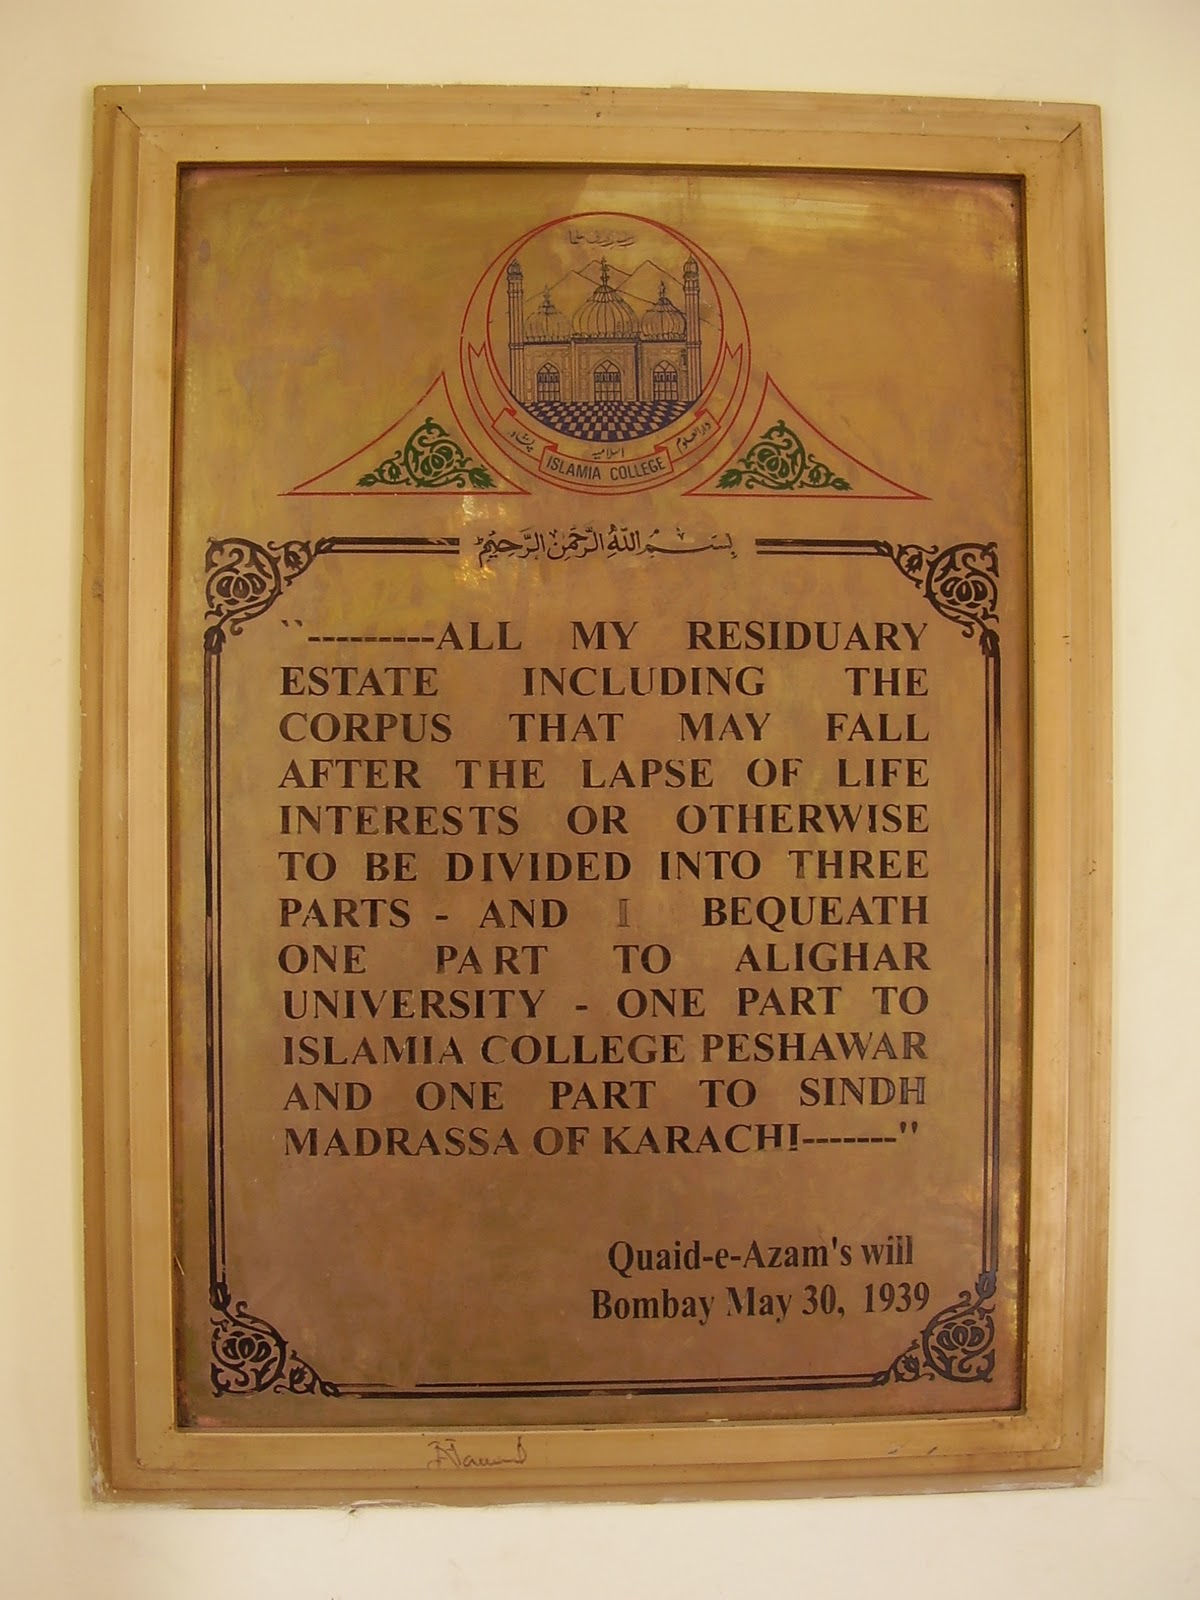 رب زدنی علما
پشاور
اسلامیہ
دارالعلوم
ISLAMIA COLLEGE
بِسْمِ اللّٰهِ الرَّحْمٰنِ الرَّحِيْمِ
"---------ALL MY RESIDUARY
ESTATE INCLUDING THE
CORPUS THAT MAY FALL
AFTER THE LAPSE OF LIFE
INTERESTS OR OTHERWISE
TO BE DIVIDED INTO THREE
PARTS - AND I BEQUEATH
ONE PART TO ALIGHAR
UNIVERSITY - ONE PART TO
ISLAMIA COLLEGE PESHAWAR
AND ONE PART TO SINDH
MADRASSA OF KARACHI-------"
Quaid-e-Azam's will
Bombay May 30, 1939